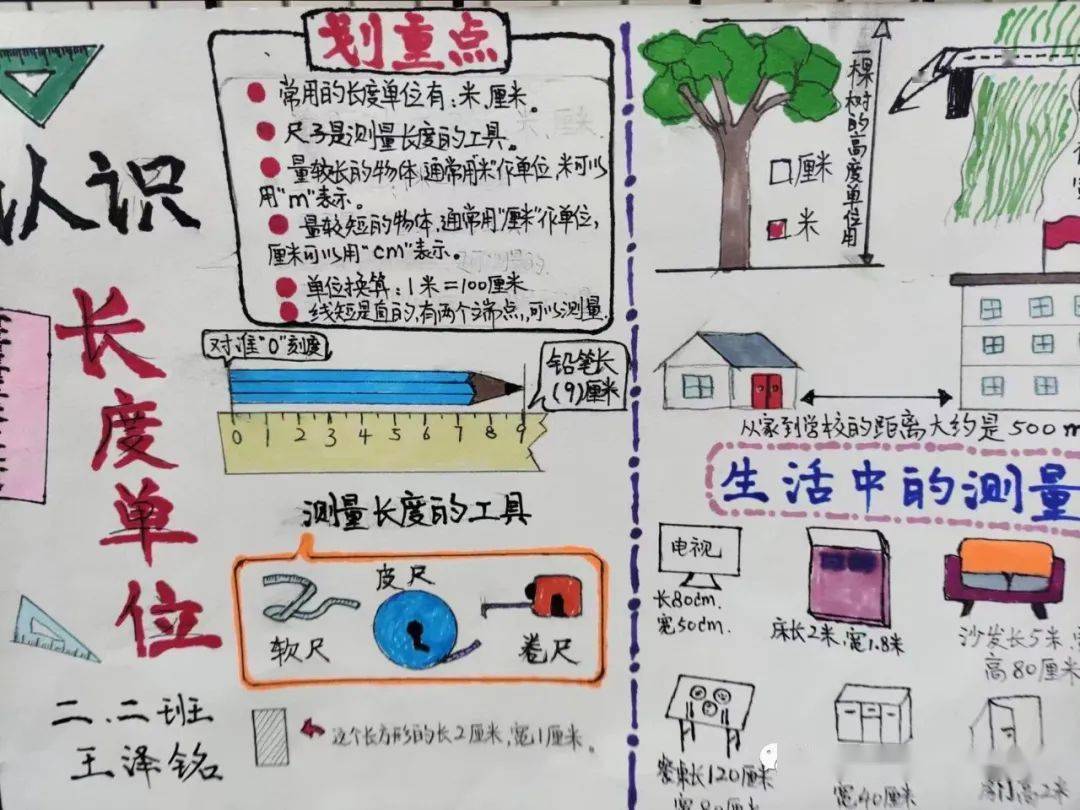 认识
长度单位
二、二班
王泽铭
划重点
常用的长度单位有：米,厘米。
尺子是测量长度的工具。
量较长的物体,通常用“米”作单位,米可以
用“m”表示。
量较短的物体,通常用“厘米”作单位,
厘米可以用“cm”表示。
单位换算：1米=100厘米
线短是直的,有两个端点,可以测量.
对准“0”刻度
铅笔长
(9)厘米
0 1 2 3 4 5 6 7 8 9
测量长度的工具
软尺
皮尺
卷尺
这个长方形的长2厘米,宽1厘米。
一棵树的高度单位用
厘米
米
从家到学校的距离大约是500m
生活中的测量
电视
长80cm.
宽50cm.
床长2米,宽1.8米
沙发长5米,
高80厘米
长120厘米
宽80厘米
宽40厘米
高2米